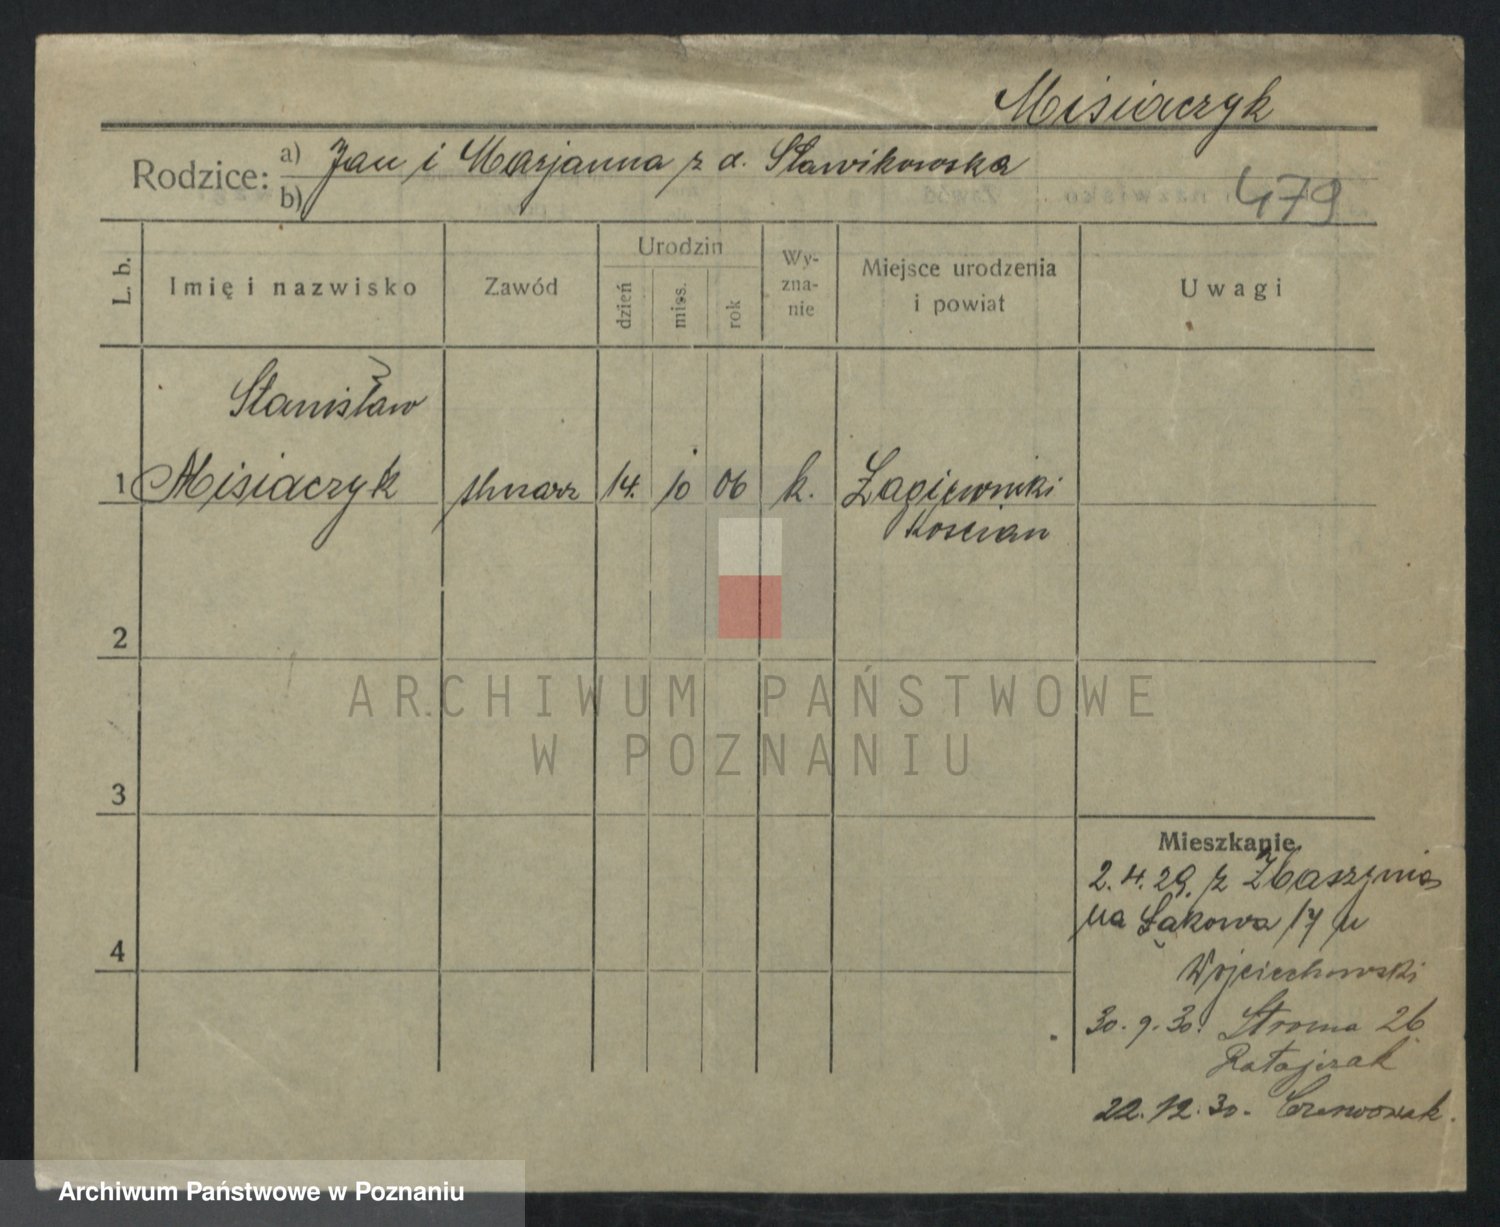 Misiaczyk
Rodzice: a) Jan i Marjanna z d. Sławikowska
b)
479
L. b.
Imię i nazwisko
Zawód
Urodzin
dzień
mies.
rok
Wy-
zna-
nie
Miejsce urodzenia
i powiat
Uwagi
Stanisław
1 Misiaczyk ślusarz 14. 10 06 k. Łagiewniki
Kościan
2
3
4
Mieszkanie.
2.4.29. z Zbąszynia
na Łąkowa 17 u
Wojciechowski
30.9.30. Stroma 26
Ratajczak
22.12.30. Czerwonak.
ARCHIWUM PAŃSTWOWE
W POZNANIU
Archiwum Państwowe w Poznaniu